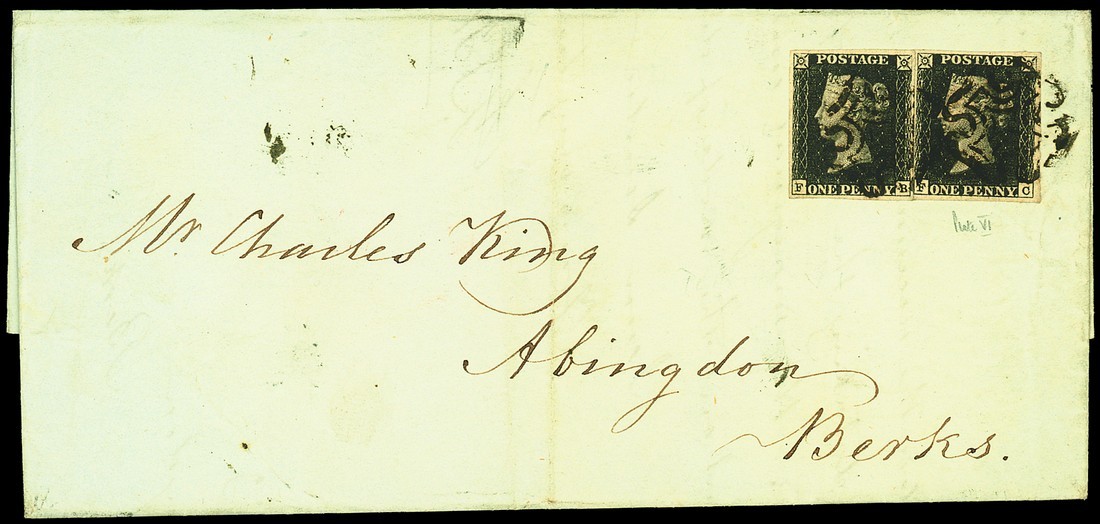 POSTAGE POSTAGE
F ONE PENNY. B F ONE PENNY. C
Plate VI
Mr Charles King
Abingdon
Berks.